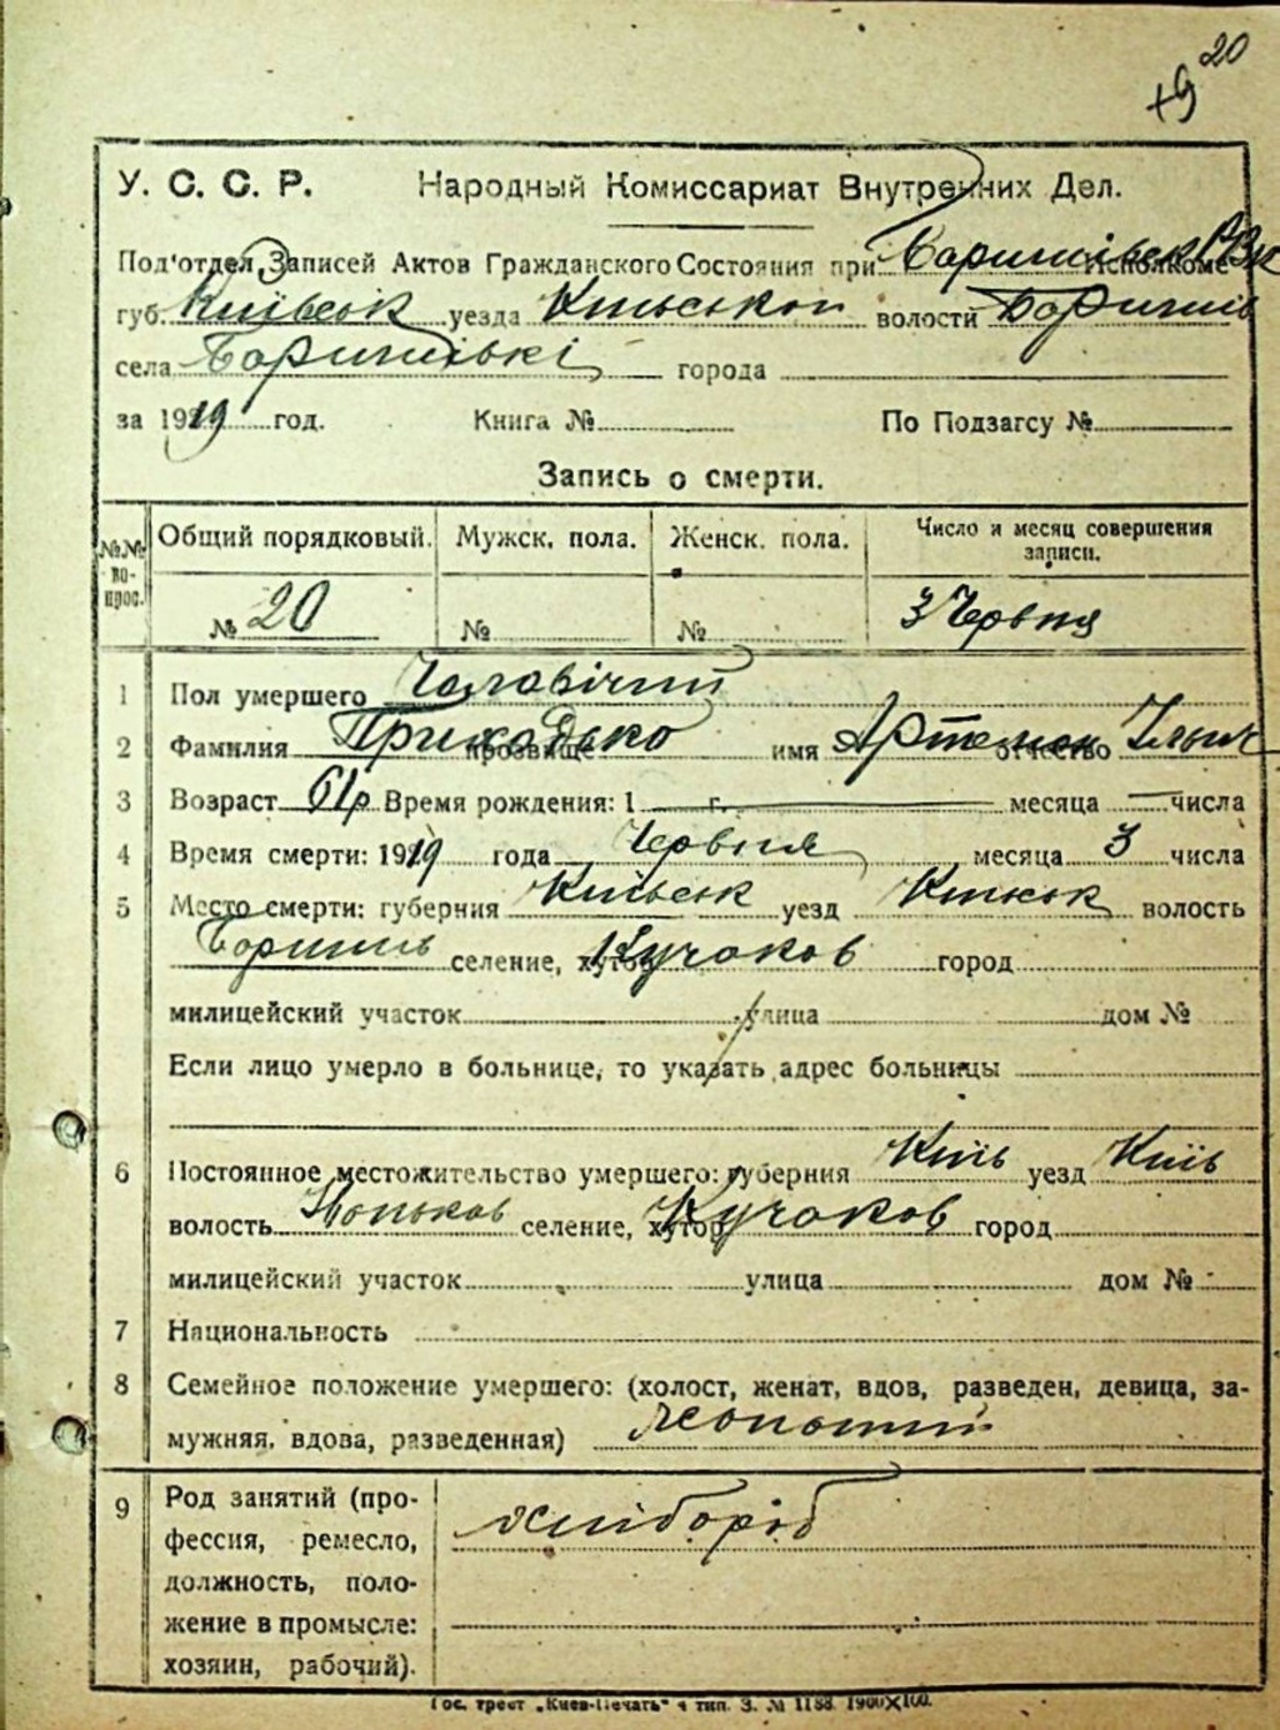 20
+9
У. С. С. Р. Народный Комиссариат Внутренних Дел.
Под'отдел Записей Актов Гражданского Состояния при Исполкоме
губ. Київськ уезда волости Бориспіль
села города
за 1919 год. Книга № По Подзагсу №
Запись о смерти.
№№ во-прос. Общий порядковый. Мужск. пола. Женск. пола. Число и месяц совершения записи.
№ 20 № № 3 Червня
1 Пол умершего Чоловічий
2 Фамилия прозвище Приходько имя Артемон отчество
3 Возраст 61р Время рождения: 1 г. месяца числа
4 Время смерти: 1919 года Червня месяца 3 числа
5 Место смерти: губерния Київськ уезд Київськ волость
селение, хутор Кучаков город
милицейский участок улица дом №
Если лицо умерло в больнице, то указать адрес больницы
6 Постоянное местожительство умершего: губерния Київ уезд Київ
волость селение, хутор Кучаков город
милицейский участок улица дом №
7 Национальность
8 Семейное положение умершего: (холост, женат, вдов, разведен, девица, за-
мужняя, вдова, разведенная) жонатий
9 Род занятий (про-
фессия, ремесло, хлібороб
должность, поло-
жение в промысле:
хозяин, рабочий).
Гос. трест „Киев-Печать" 4 тип. З. № 1188 1900×100.